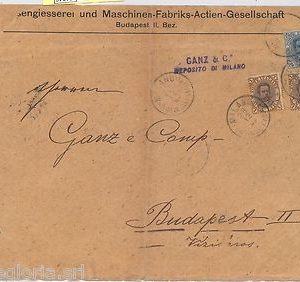 sengiesserei und Maschinen-Fabriks-Actien-Gesellschaft
Budapest II. Bez.
GANZ & C.
DEPOSITO DI MILANO
Ganz e Comp
Budapest II
egloria.srl